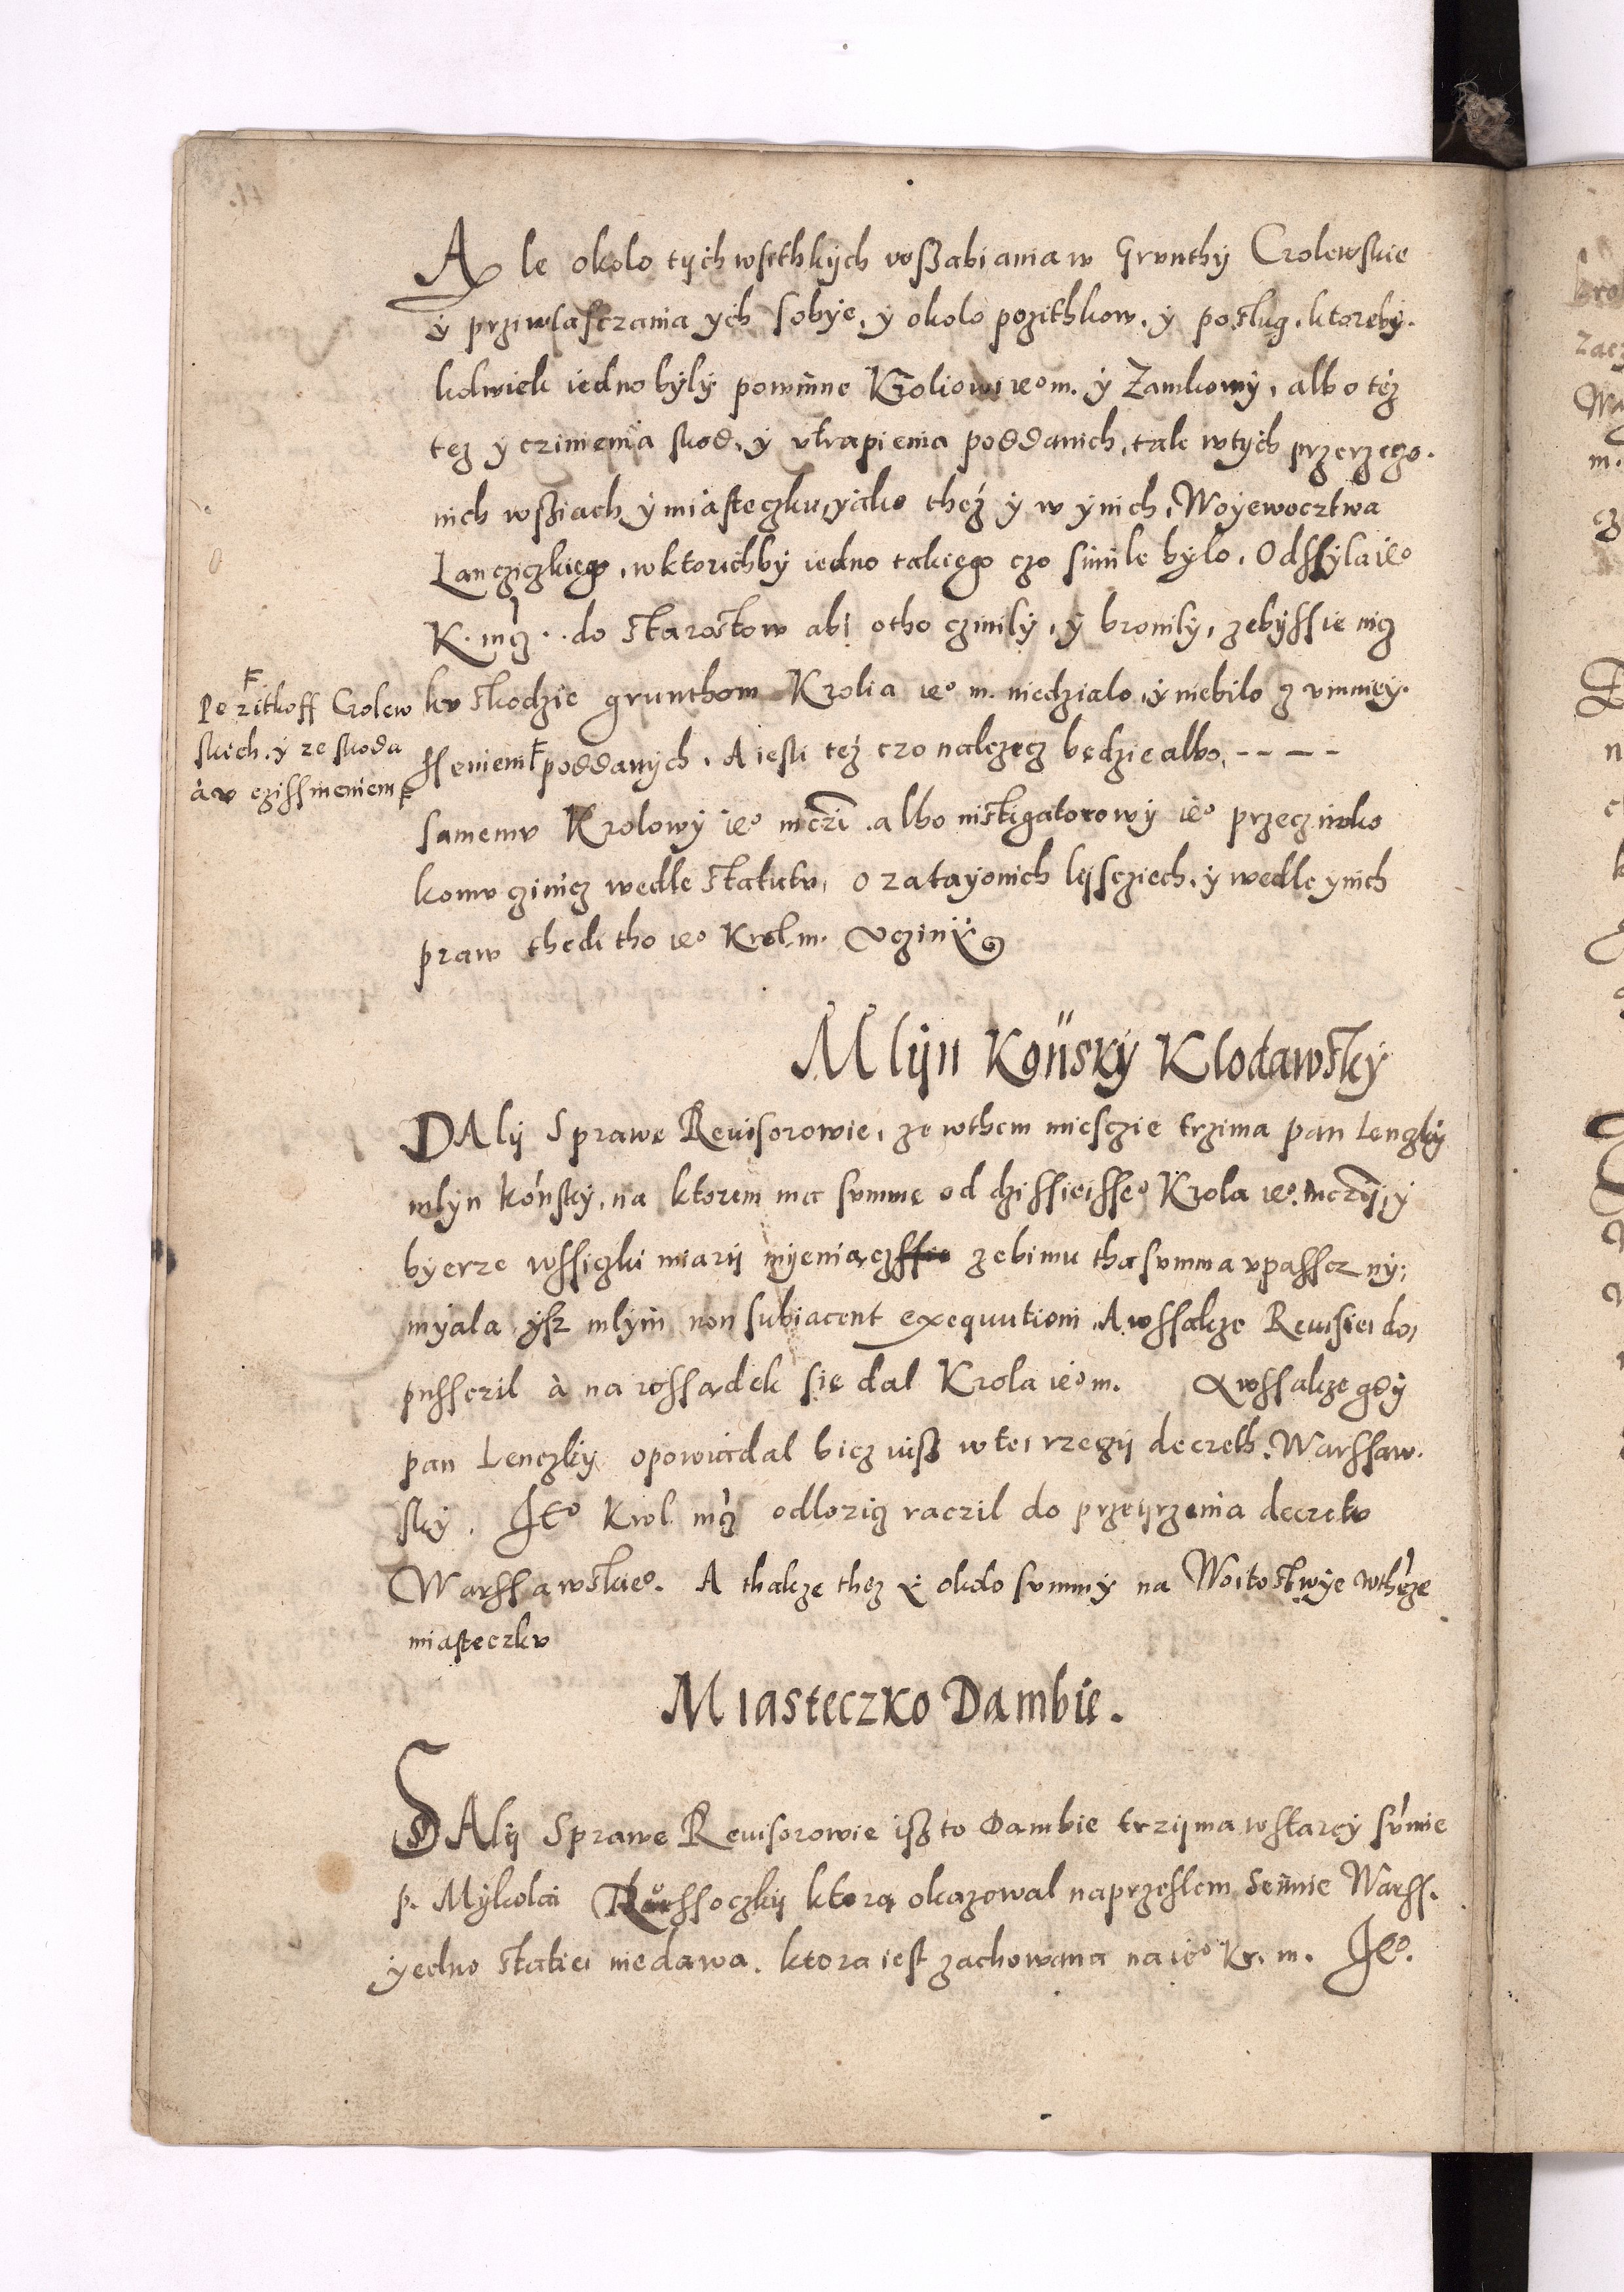 Ale okolo tych wsithkych wßabiania w Grvnthÿ Crolewskie
ÿ prziwlasczania ych sobÿe, ÿ okolo pozithkow, ÿ poslug, ktorebÿ.
kolwiek iedno bÿlÿ powinne Kroliowi ieº m. ÿ Zamkowÿ, albo téz
tez ÿ czinienia skod, ÿ vtrapienia poddanich, tak wtÿch przerzego.
nich wßiach ÿ miasteczku, yáko théz ÿ w ÿnich Woÿewocztwa
Lancziczkiego, w ktorichbÿ iedno takiego czo simile bÿlo, Odssÿla ieº
K. mcz. do starostow abi otho czinilÿ, ÿ bronilÿ, zebÿssie nicz
kv skodzie grunthom Krolia ieº m. niedzialo, ÿ niebilo z vmnieÿ.
Pozitkoff Crolew
skich, ÿ ze skoda
à v czissnieniem
sseniem poddanÿch. A iesli téz czo nalezecz będzie albo, - - - -
samemv Krolowÿ ieº mczi albo instigatorowÿ ieº przecziwko
komv czinicz wedle statutv, o zatayonich lijscziech, ÿ wedle ynich
praw thedi tho ieº Krol. m. vczinÿ
Mlijn Końskÿ Klodawskÿ
DAlij Sprawę Reuisorowie, ze wthem miesczie trzima pan Lenczkÿ
mlÿn końskÿ, na ktorem ma svmmę od dzissieisseº Krola ieº mczij, ÿ
bÿerze wssiczki miarij mieniącz zebimu tha svmma vpasscz ny;
mÿala ÿsz mlÿni non subiacent exequutioni. A wssakze Reuisiei do,
pusscził à na rossądek się dal Krola ieº m. A wssakze gdÿ
pan Lenczkÿ opowiádal bicz niß w tei rzeczij decreth Warssaw.
skÿ. Jeº Krol. mcz odlozicz raczil do przeijrzenia decretv
Warssawskieº. A thakze thez ÿ okolo svmmÿ na Woitostwÿe wthÿze
miasteczkv
Miasteczko Dambie.
DAlij Sprawę Reuisorowie isz to Dambie trzijma w starcÿ sv̄mie
p. Mÿkolai Russoczkij ktorą okazowal na przeslem Seimie Warss.
yedno statiei niedawa, ktora iest zachowana na ieº Kr. m. Jeº.